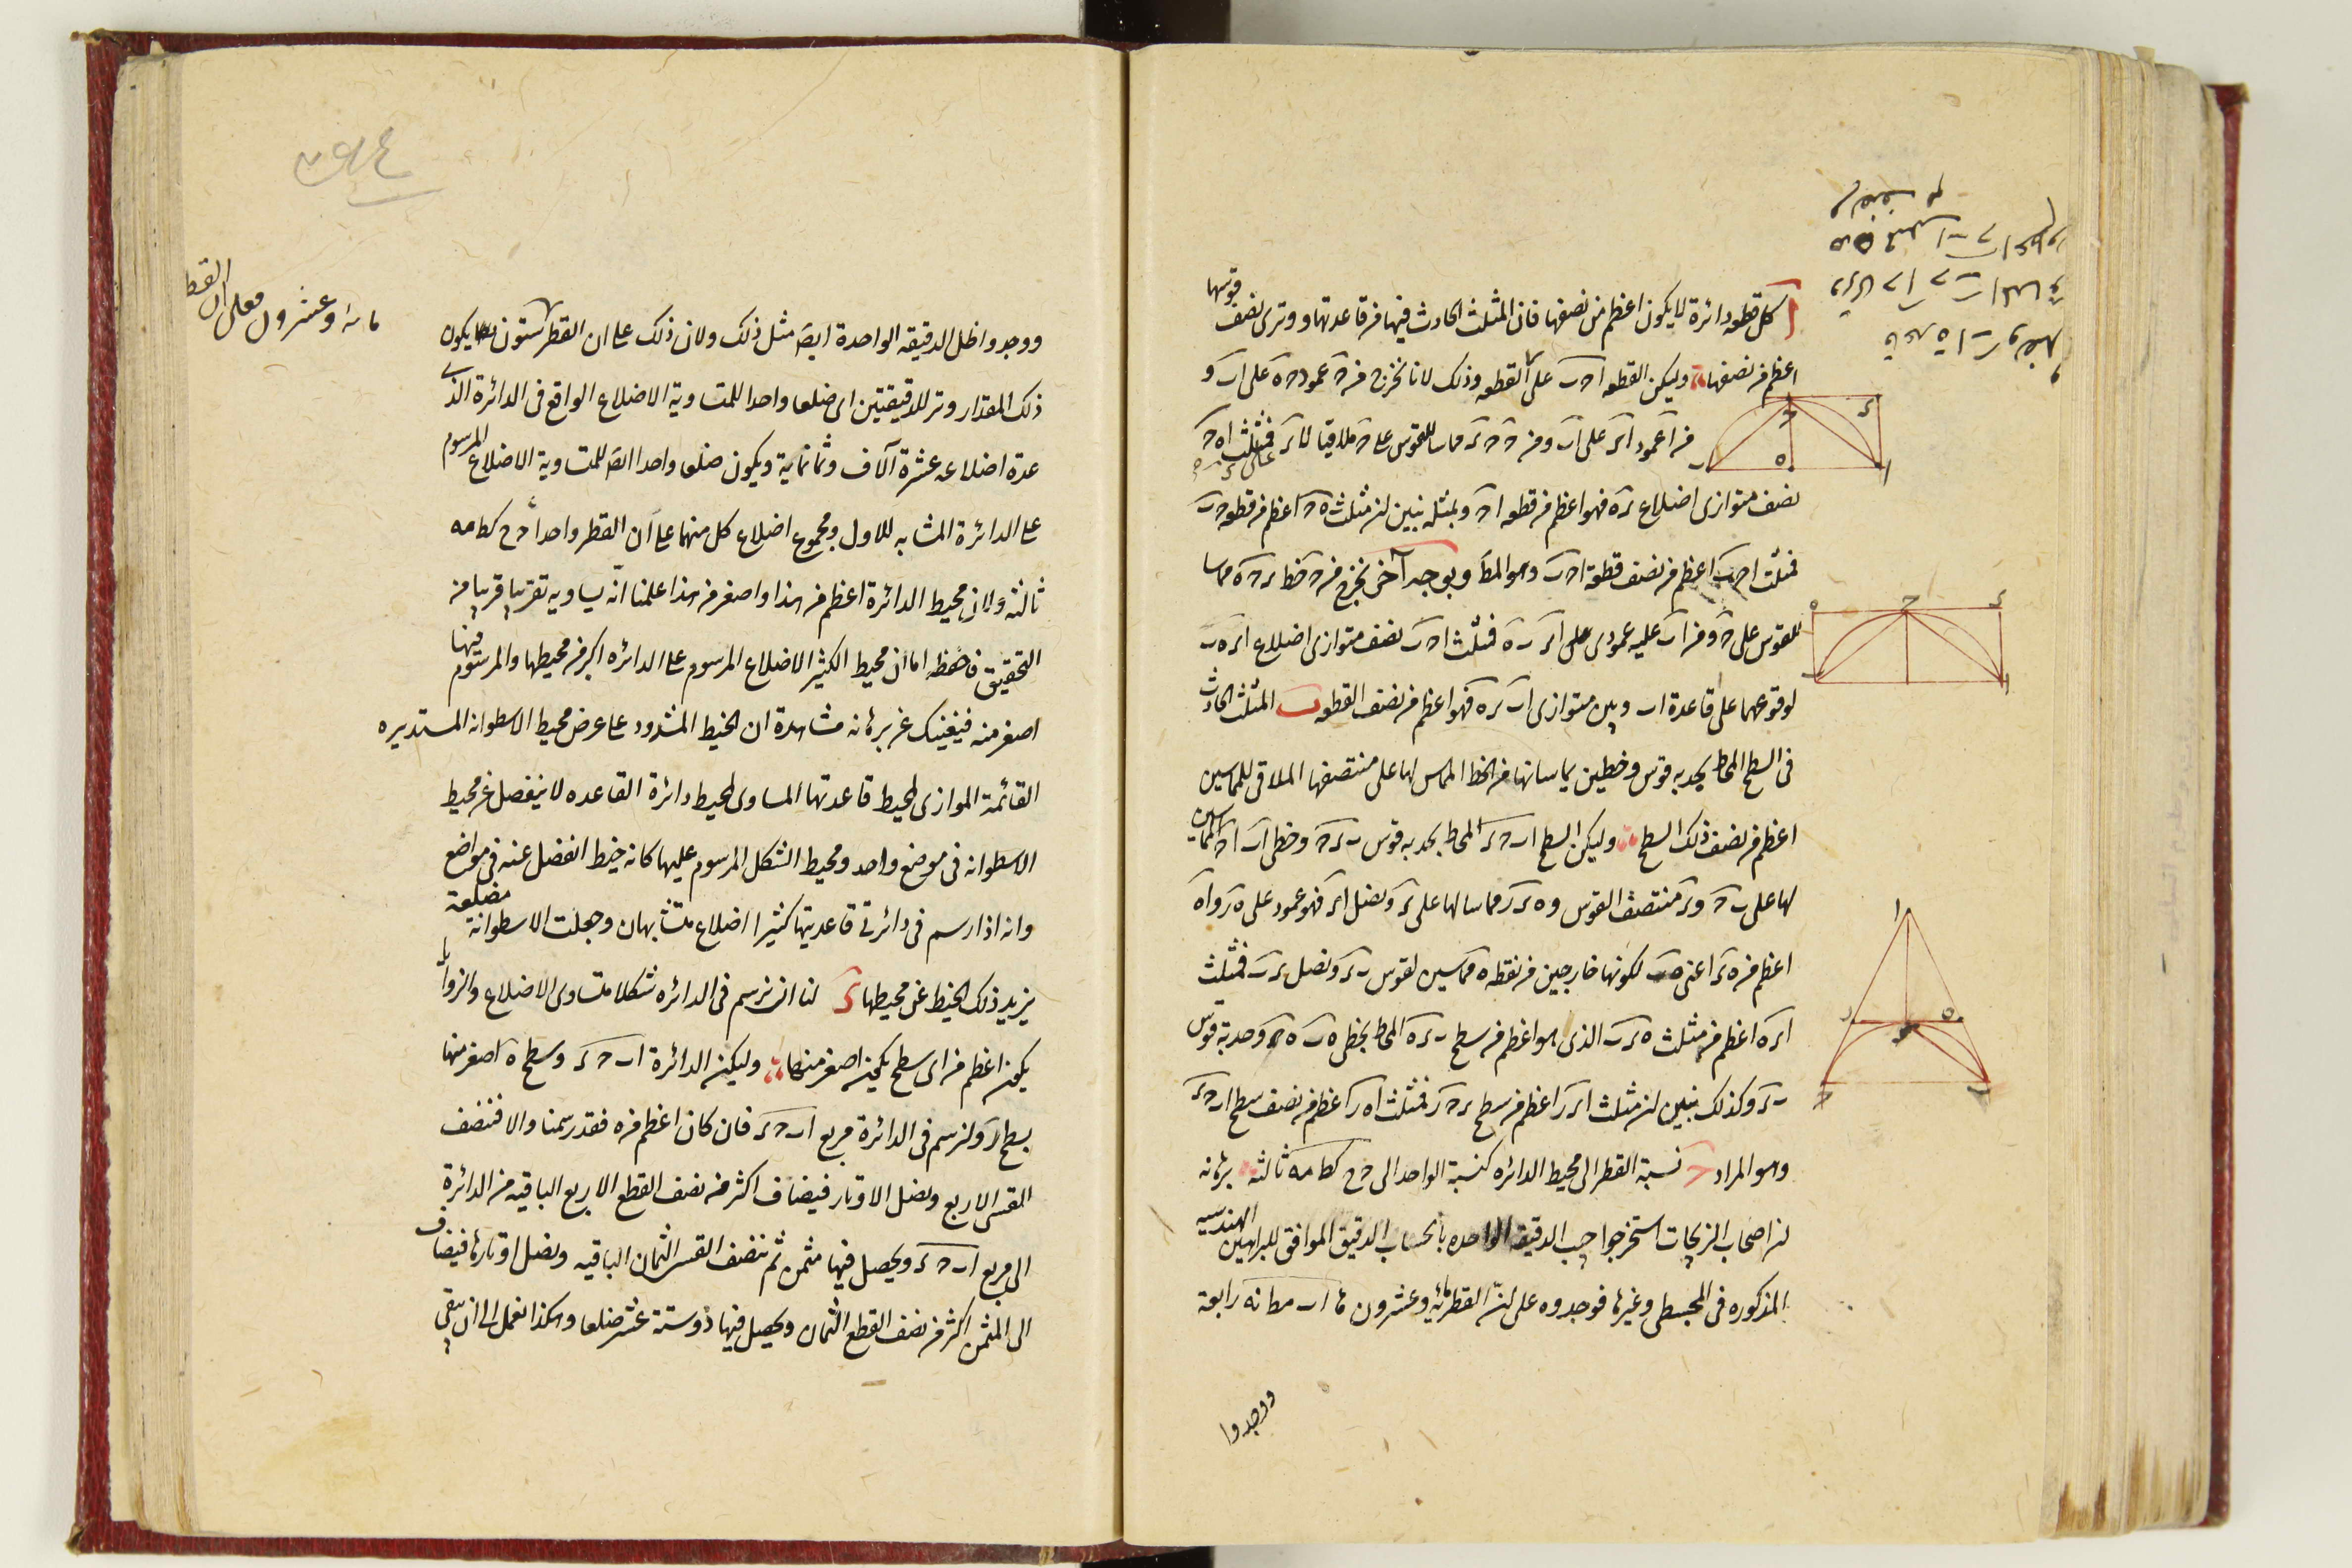 كل قطعه دائرة لا يكون اعظم من نصفها فان المثلث الحادث فيها فر قاعدتها ووترى نصف قوسها
اعظم فر نصفها وليكن القطعه ا ح ب على القطعه وذلك لانا نخرج فر ح عمود ح ه على ا ب و
فر ا عمود ا د على ا ب وفر ح ح د مماسا للقوس على ح ملاقيا لا د فمثلث ا ه ح
نصف متوازى اضلاع د ه فهو اعظم فر قطعه ا ح وبمثله نبين لنر مثلث ب ه ح اعظم فر قطعه ح ب
فمثلث ا ح ب اعظم فر نصف قطعة ا ح ب وهو المط وبوجه آخر نخرج فر ح خط د ح ه مماسا
للقوس على ح وفر ا ب عليه عمودى ا د ب ه فمثلث ا ح ب نصف متوازى اضلاع ا د ه ب
لوقوعهما على قاعدة ا ب وبين متوازى ا ب د ه فهو اعظم فر نصف القطعه ب المثلث الحادث
فى السطح المحاط بحدبه قوس وخطين يماسانها فر الخط المماس لها على منتصفها الملاقى للمماسين
اعظم فر نصف ذلك السطح وليكن السطح ا ب ح د المحاط بحدبه قوس ب د ح وخطى ا ب ا ح المماسين
لها على ب ح و د منتصف القوس و ه د ر مماسا لها على د ونصل ا د فهو عمود على ه ر و ا ه
اعظم فر ه د اعنى ه ب لكونها خارجين فر نقطه ه مماسين لقوس ب د ونصل د ب فمثلث
ا د ه اعظم فر مثلث ه د ب الذى هو اعظم فر سطح ب د ه المحاط بخطى ه ب ه د وحدبة قوس
ب د وكذلك نبين لنر مثلث ا د ر اعظم فر سطح د ح ر فمثلث ا ه ر اعظم فر نصف سطح ا ب ح د
وهو المراد ح نسبة القطر الى محيط الدائره كنسبة الواحد الى ح ح كط مه ثالثه برهانه
لنر اصحاب الزيجات استخرجوا جيب الدقيقه الواحده بالحساب الدقيق الموافق للبراهين الهندسيه
المذكوره فى المجسطى وغيرها فوجدوه على لنر القطر مائه وعشرون ا ب مط نه رابعة
ووجدوا
ووجدوا ظل الدقيقه الواحدة ايضا مثل ذلك ولان ذلك على ان القطر ستون يكون
مائه وعشرون فعلى ان القطر
ذلك المقدار وتر للدقيقتين اى ضلعا واحدا للمتساوية الاضلاع الواقع فى الدائرة الذى
عدة اضلاعه عشرة آلاف وثمانمايه ويكون ضلعا واحدا ايضا للمتساوية الاضلاع المرسوم
على الدائرة المشابه للاول ومجموع اضلاع كل منهما على ان القطر واحدا ح ح كط مه
ثالثه ولان محيط الدائرة اعظم فر هذا واصغر فر هذا علمنا انه يساويه تقريبا قريبا فر
التحقيق فاحفظه اما ان محيط الكثير الاضلاع المرسوم على الدائره اكبر فر محيطها والمرسوم فيها
اصغر منه فيغنيك عن برهانه مشاهدة ان الخيط المشدود على عرض محيط الاسطوانه المستديره
القائمة الموازى لمحيط قاعدتها المساوى لمحيط دائرة القاعده لا ينفصل عن محيط
الاسطوانه فى موضع واحد ومحيط الشكل المرسوم عليها كانه خيط انفصل عنه فى مواضع
وانه اذا رسم فى دائرتى قاعدتيها كثيرا اضلاع متشابهان وجعلت الاسطوانة مضلعة
يزيد ذلك الخيط عن محيطها د لنا ان نرسم فى الدائره شكلا متساوى الاضلاع والزوايا
يكون اعظم فر اى سطح يكون اصغر منها وليكن الدائرة ا ب ح د وسطح ه اصغر منها
بسطح ر ولنرسم فى الدائرة مربع ا ب ح د فان كان اعظم فر ه فقد رسمنا والا فننصف
القسى الاربع ونصل الاوتار فيضاف اكثر فر نصف القطع الاربع الباقيه فر الدائرة
الى مربع ا ب ح د ويحصل فيها مثمن ثم ننصف القسى الثمان الباقيه ونصل اوتارها فيضاف
الى المثمن اكثر فر نصف القطع الثمان ويحصل فيها ذو ستة عشر ضلعا وهكذا نعمل الى ان يبقى